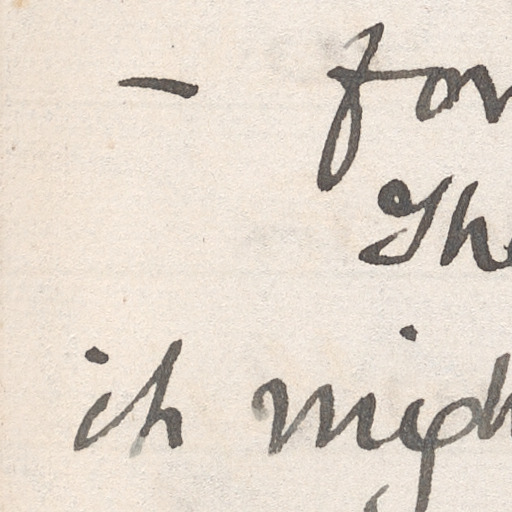 - for
The
it migh